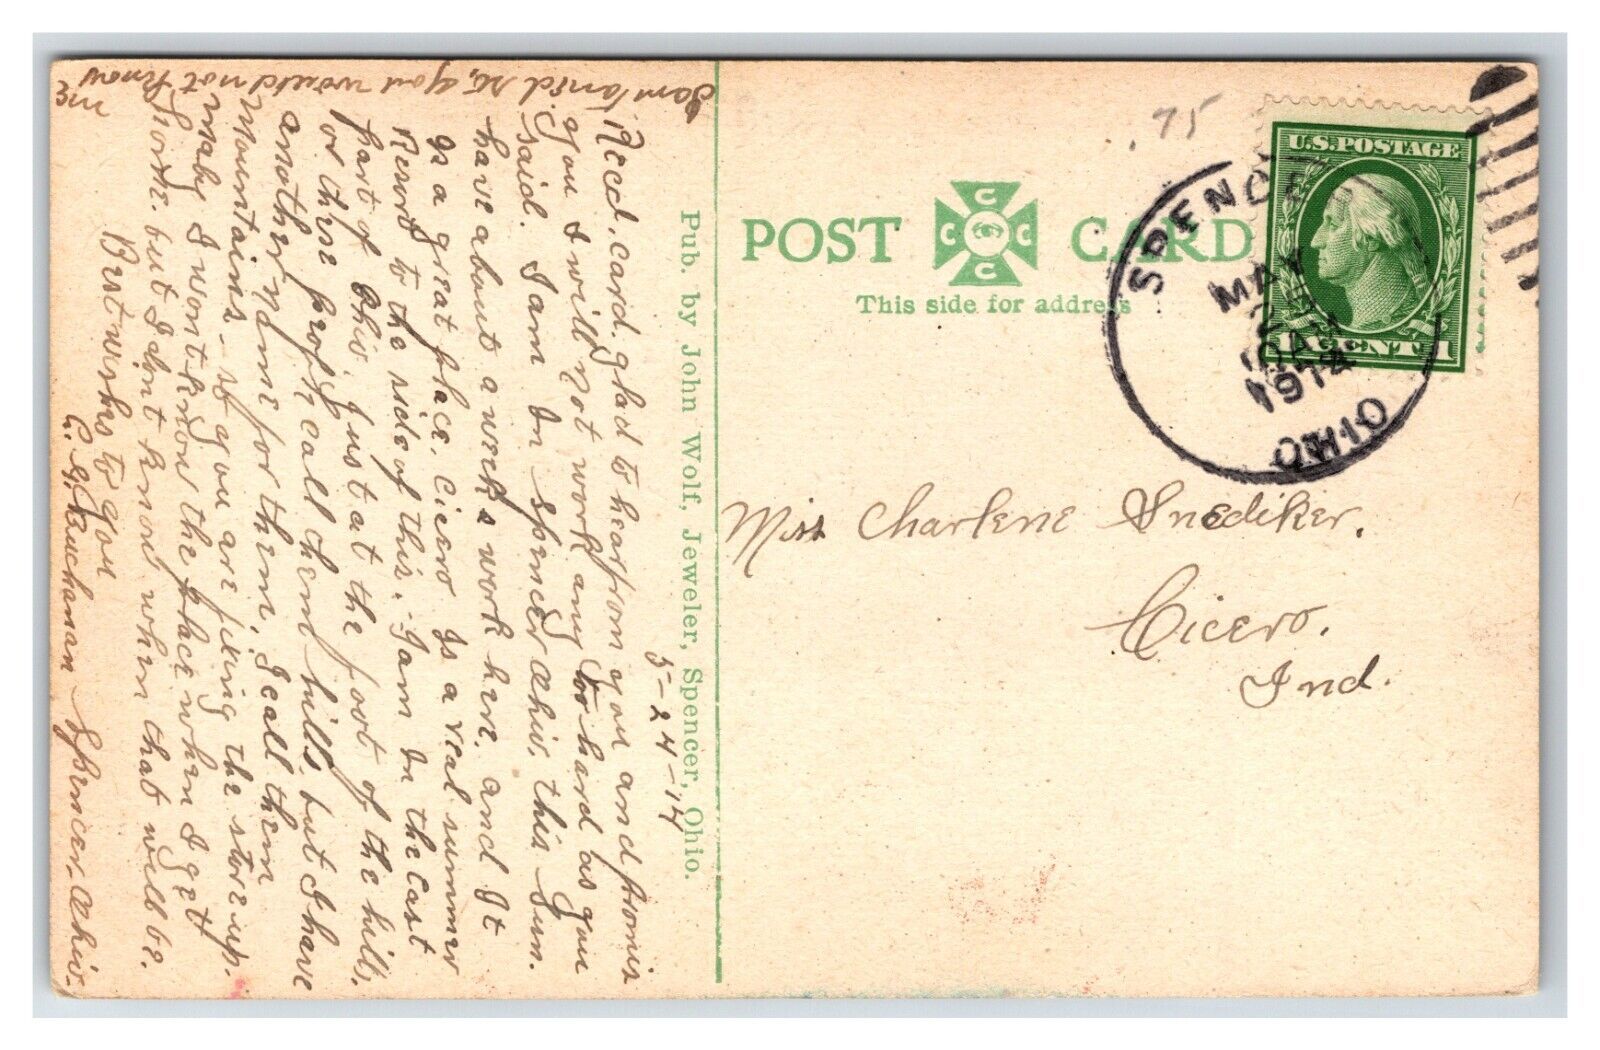 5-24-14
Recd. card, glad to hear from you and promis
you I will not work any too hard as you
said. I am in Spencer Ohio, this Sun.
have about a weeks work here. and It
Is a great place, Cicero Is a real summer
Resort to the side of this. I am In the East
part of Ohio, Just at the foot of the hills,
or thre prof. call them hills, but I have
another name for them. I call them
Mountains. - If you are fixing the store up.
Maby I wont know the place when I get
home. but I dont know when that will be.
Best wishes to you
C. G. Buchanan Spencer, Ohio.
so, you would not know
me
Pub. by John Wolf, Jeweler, Spencer, Ohio.
POST CARD
C C C C
This side for address
.75
U.S. POSTAGE
1 CENT 1
SPENCER
MAY
10AM
1914
OHIO
Miss Charlene Snediker.
Cicero.
Ind.